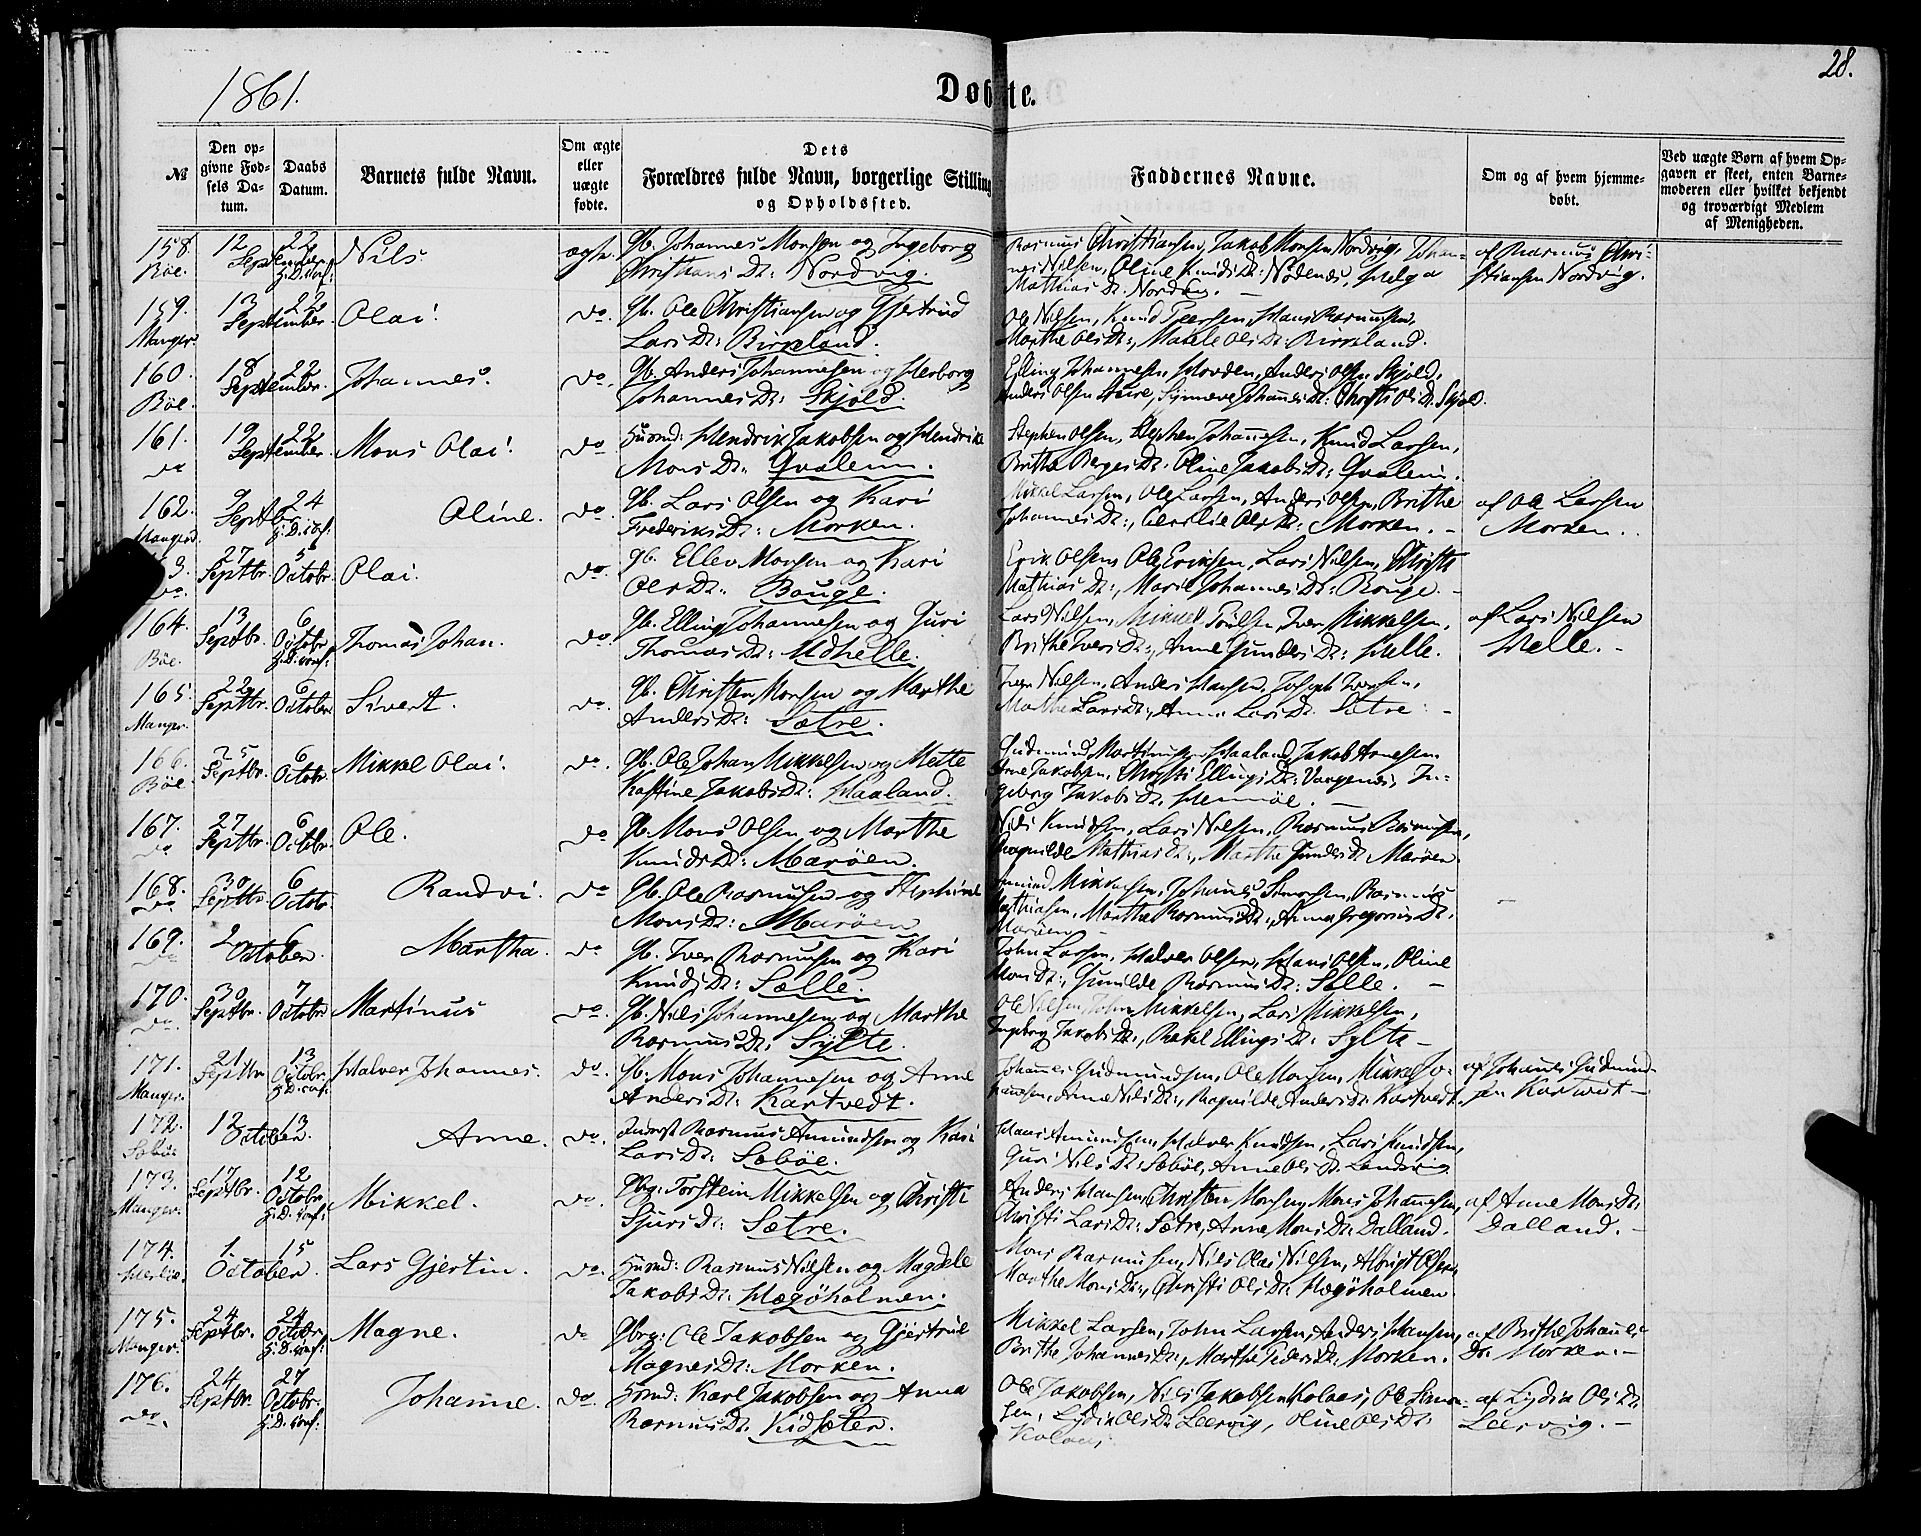 28.
1861.
Døbte.
№
Den opgivne Fødsels Datum.
Daabs Datum.
Barnets fulde Navn.
Om ægte eller uægte fødte.
Dets Forældres fulde Navn, borgerlige Stilling og Opholdssted.
Faddernes Navne.
Om og af hvem hjemmedøbt.
Ved uægte Børn af hvem Opgaven er skeet, enten Barnemoderen eller hvilket bekjendt og troværdigt Medlem af Menigheden.
158. 12 22 Nils ægte. Gb. Johannes Monsen og Ingeborg Rasmus Christiansen, Jakob Monsen Nordvig, Johan- af Rasmus Chri-
Böe. September Christians Dr: Nordvig. nes Nilsen, Oline Knuds Dr: Nödenes, Helga stiansen Nordvig.
Mathias Dr. Nordvig.
159. 13 22 Olai. do. Gb. Ole Christiansen og Gjertrud Ole Nilsen, Knud Peersen, Hans Rasmussen,
Manger. September. Lars Dr: Birkeland. Marthe Ols Dr:, Ols Dr: Birkeland.
160. 18 22 Johannes. do. Gb. Anders Johannesen og Herborg Elling Johannesen Hovden, Anders Olsen Skjold,
Böe. September. Johannes Dr: Skjold. Anders Olsen, Synneve Johannes Dr: Christi Ols Dr. Skjold.
161. 19 22 Mons Olai. do Huusmd: Hendrik Jakobsen og Hendrike Stephen Olsen, Stephen Johannesen, Knud Larsen,
do September Mons Dr: Qvalem. Britha Berges Dr. Oline Jakobs Dr: Qvalem.
162. 9 24 Oline. do. Gb. Lars Olsen og Kari Mikkel Larsen, Ole Larsen, Anders Olsen, Brithe af Ole Larsen
Manger. Septbr Frederiks Dr: Morken. Johannes Dr:, Cecilie Ols Dr: Morken. Morken.
27 5 Olai. do. Gb. Ellev Monsen og Kari Erik Olsen, Ole Eriksen, Lars Nilsen, Christi
do. Septbr. Octobr. Ols Dr. Bouge. Mathias Dr:, Marie Johannes Dr: Bouge.
164. 13 6 Thomas Johan. do. Gb. Elling Johannesen og Guri Lars Nilsen, Mikkel, Iver Mikkelsen, af Lars Nilsen
Böe. Septbr. Octobr Thomas Dr: Helle. Brithe Ivers Dr:, Anne Gunders Dr: Helle. Helle.
165 22 6 Sivert. do. Gb. Christen Monsen og Marthe Iver Nilsen, Anders Hansen, Joseph Iversen,
Manger. Septbr. October Anders Dr: Sætre. Marthe Lars Dr:, Anna Lars Dr. Sætre.
166. 25 6 Mikkel Olai. do. Gb. Ole Johan Mikkelsen og Mette Gudmund Martinusen Haaland, Jakob Arnesen
Böe Septbr. Octobr. Kastine Jakobs Dr: Haaland. Arne Jakobsen, Christi Ellings Dr: Vaagenes, In-
geborg Jakobs Dr.
167. 27 6 Ole. do Gb. Mons Olsen og Marthe Nils Knudsen, Lars Nilsen, Rasmus Rasmussen,
do Septbr. Octobr. Knuds Dr: Maröen. Ragnilde Mathias Dr:, Marthe Gunders Dr Maröen
168. 30 6 Randvi. do Gb. Ole Rasmussen og Stephine Mikkelsen, Johannes Simonsen, Rasmus
do Septbr. Octobr. Mons Dr: Maröen Mathiasen, Marthe Rasmus Dr:, Anna Gregorius Dr.
Maröen
169. 2 6 Martha. do Gb. Iver Rasmussen og Kari John Larsen, Halver Olsen, Hans Olsen, Oline
do October. Knuds Dr: Sælle. Mons Dr:, Gunilde Rasmus Dr: Sælle.
170. 30 7 Martinus do. Gb. Nils Johannesen og Marthe Ole Nilsen, John Mikkelsen, Lars Mikkelsen,
do. Septbr. Octobr Rasmus Dr: Sylte. Ingeborg Jakobs Dr:, Rakel Ellings Dr: Sylte
171. 21 13 Halver Johannes. do. Gb. Mons Johannesen og Anne Johannes Gudmundsen, Ole Monsen, Mikkel Jo- af Johannes Gudmund-
Manger. Septbr Octobr. Anders Dr: Kartvedt. hannesen, Anne Nils Dr:, Ragnilde Anders Dr: Kartvedt. sen Kartvedt
172. 12 13 Anne. do. Rasmus Amundsen og Kari Hans Amundsen, Halver Knudsen, Lars Knudsen,
Sæböe October. Lars Dr: Sæböe. Guri Nils Dr: Sæböe, Anne Ols Dr. Landsvig
173. 17 12 Mikkel. do. Gbrg: Torstein Mikkelsen og Christi Anders Hansen, Christen Monsen, Mons Johannesen, af Anne Mons Dr:
Manger. Septbr. Octobr Sjurs Dr: Sætre. Christi Lars Dr: Sætre, Anne Mons Dr: Dalland. Dalland.
174. 1 15 Lars Gjertin. do. Huusmd: Rasmus Nilsen og Magdele Mons Rasmussen, Nils Olai Nilsen, Albrigt Olsen,
October. Jakobs Dr: Hægöholmen. Marthe Mons Dr:, Christi Ols Dr: Hægöholmen
175. 24 24 Magne. do Gbrg: Ole Jakobsen og Gjertrud Mikkel Larsen, John Larsen, Anders Hansen, af Brithe Johannes
Manger. Septbr. Octobr. Magnes Dr: Morken. Brithe Johannes Dr:, Marthe Peders Dr: Morken. Dr: Morken.
176. 24 27 Johanne. do. Huusmd: Karl Jakobsen og Anna Ole Jakobsen, Nils Jakobsen Kolaas, Ole Simon- af Lydia Ols Dr:
do. Septbr. Octobr. Rasmus Dr. Kidsæter. sen, Lydia Ols Dr Leervig, Oline Ols Dr: Leervig.
Kolaas.